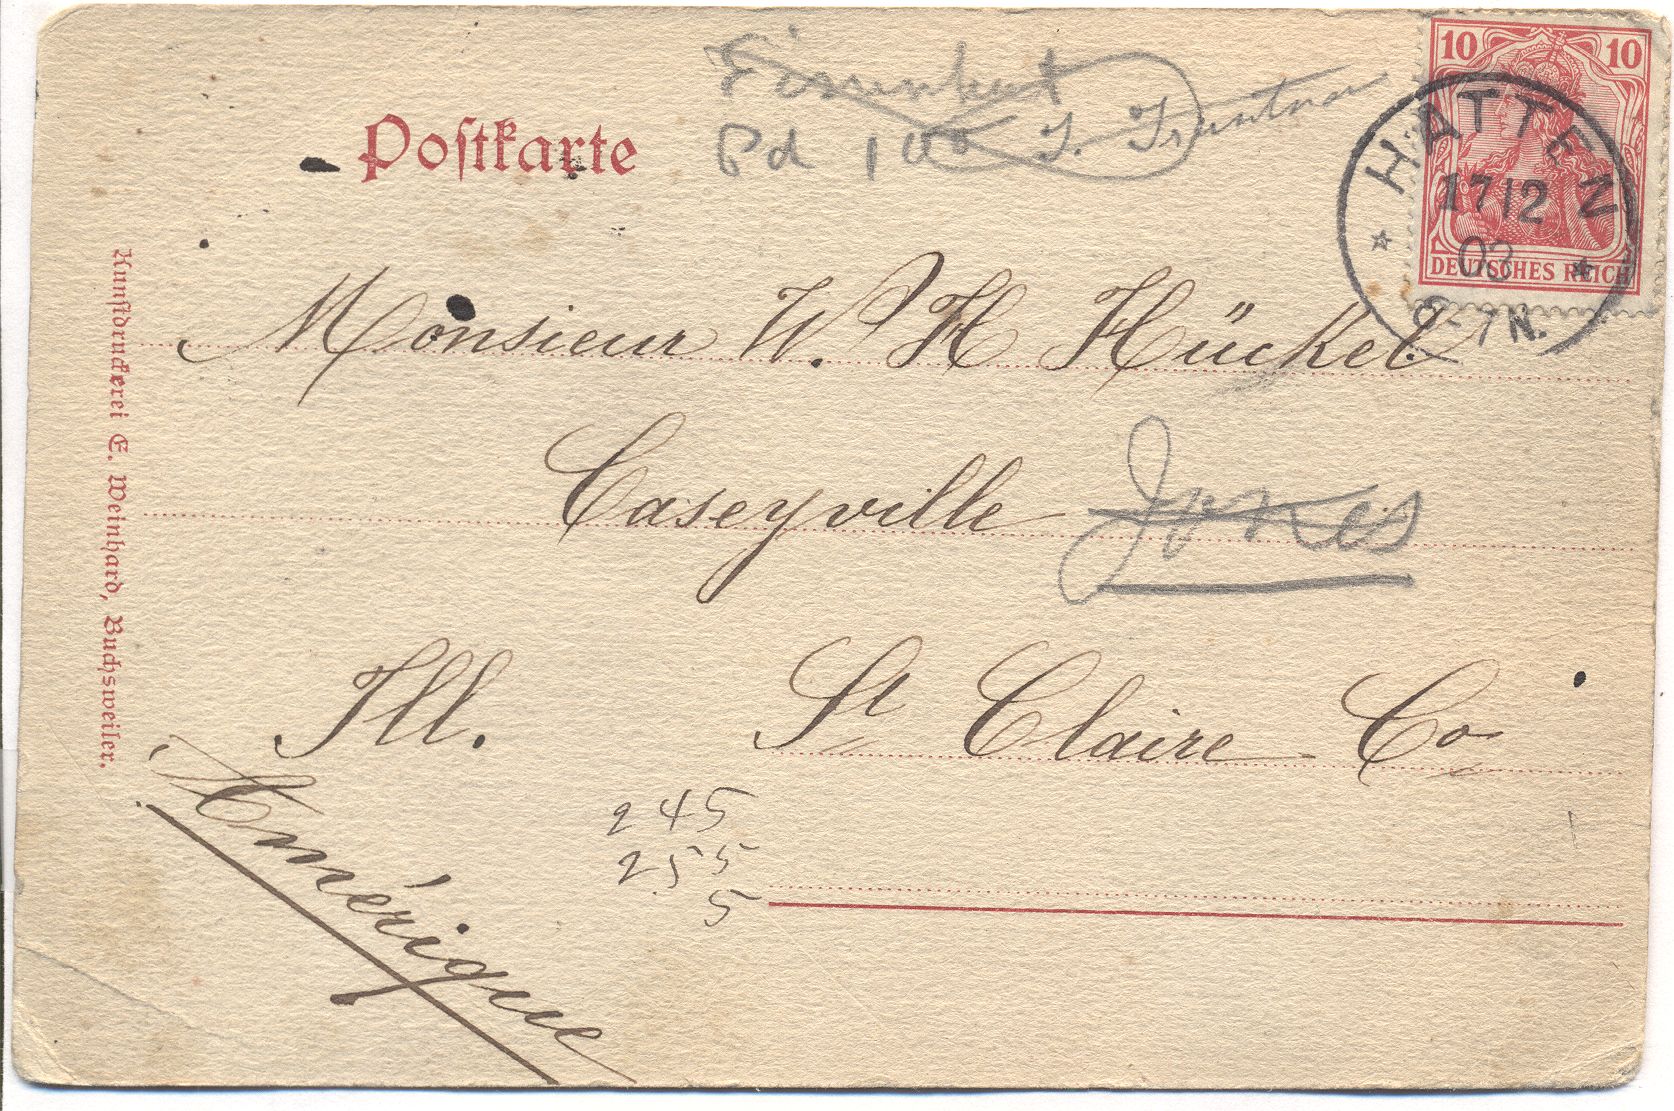 Postkarte
Pd 100 J.
10 10
DEUTSCHES REICH
HATTEN
17 12
03
6-7N.
Monsieur W. H Hückel
Caseyville Jones
Ill. St Claire Co
Amérique
245
255
5
Kunstdruckerei E. Weinhard, Buchsweiler.